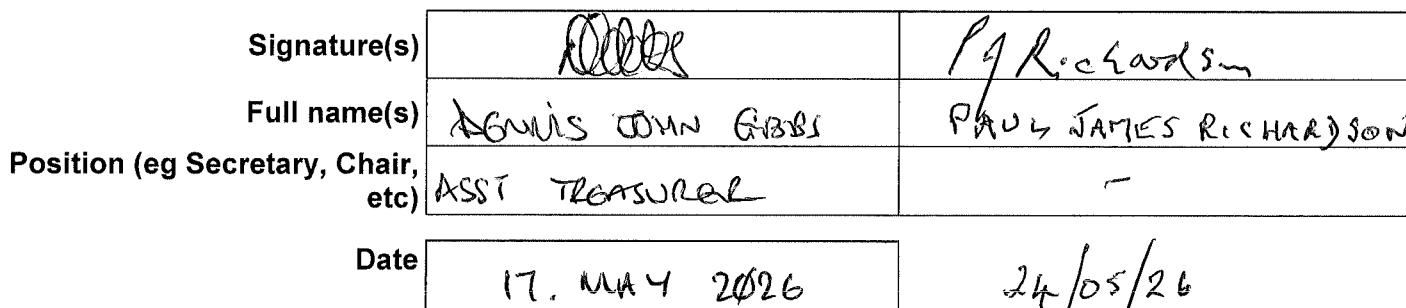 Signature(s) PJ Richardson
Full name(s) DENNIS JOHN GIBBS PAUL JAMES RICHARDSON
Position (eg Secretary, Chair,
etc) ASST TREASURER -
Date 17. MAY 2026 24/05/26